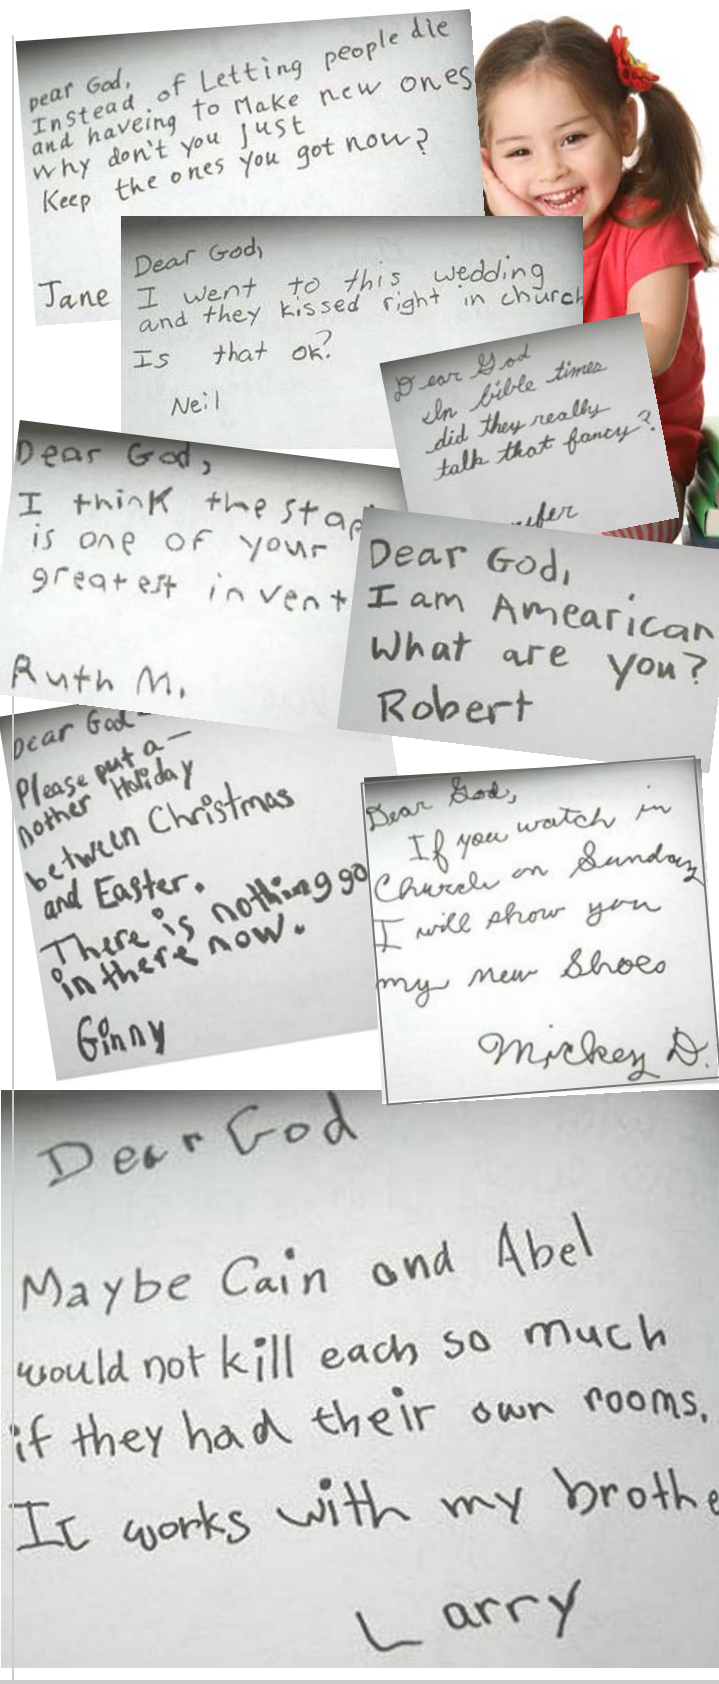 Dear God,
Instead of Letting people die
and haveing to Make new ones
why don't you just
Keep the ones you got now?
Jane
Dear God,
I went to this wedding
and they kissed right in church
Is that ok?
Neil
Dear God
In bible times
did they really
talk that fancy?
Dear God,
I think the
is one of your
greatest
Ruth M.
Dear God,
I am Amearican
What are you?
Robert
Dear God-
Please put a-
nother Holiday
between Christmas
and Easter.
There is nothing
in there now.
Ginny
Dear God,
If you watch in
Church on Sunday
I will show you
my new Shoes
Mickey D.
Dear God
Maybe Cain and Abel
would not kill each so much
if they had their own rooms.
It works with my
Larry